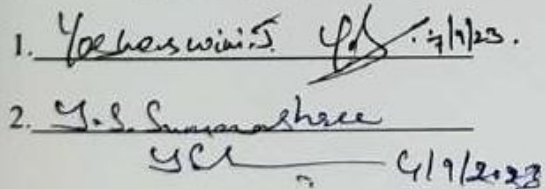 1. Yashaswini.J. 7/9/23.
2. Y.S. Sumanashree
4/9/2023